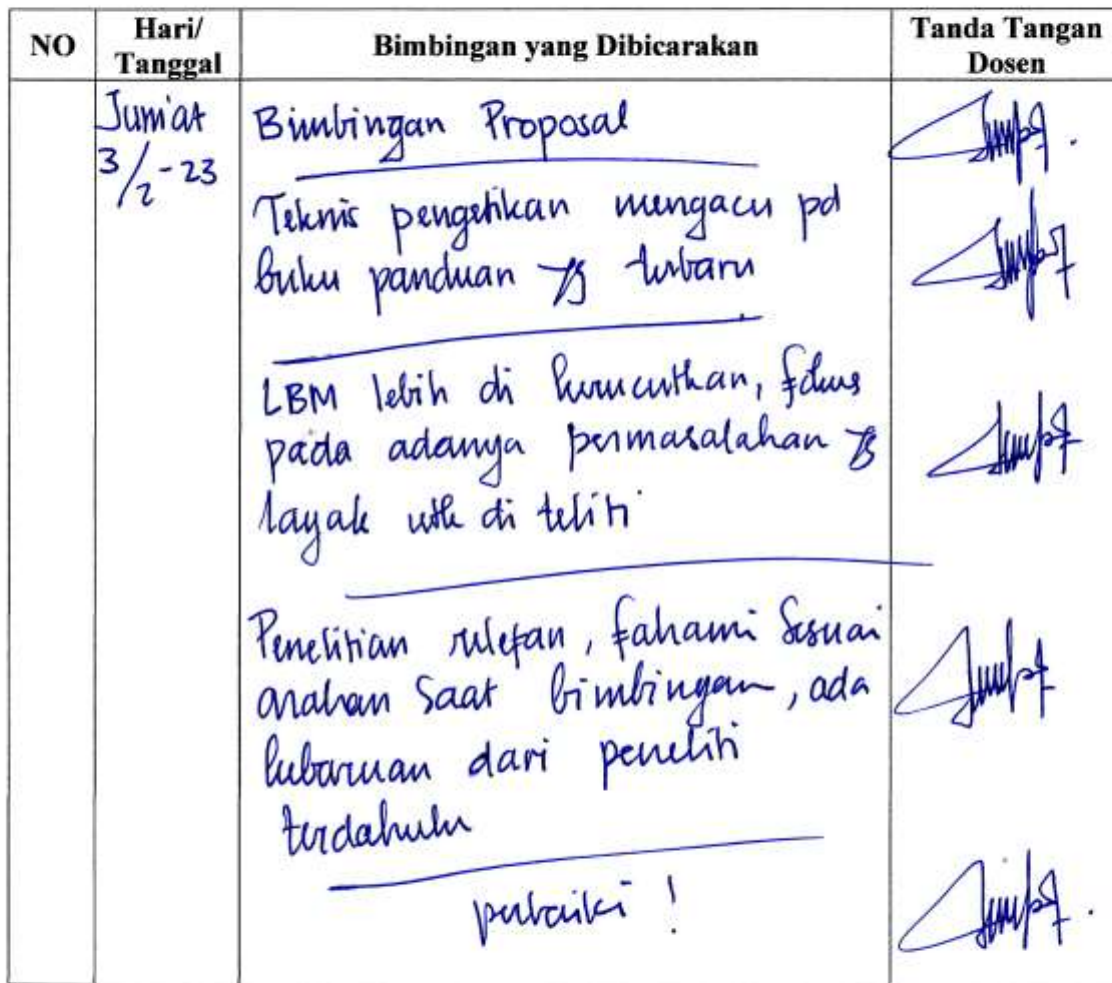 NO
Hari/
Tanggal
Bimbingan yang Dibicarakan
Tanda Tangan
Dosen
Jum'at
3/2-23
Bimbingan Proposal
Teknis pengetikan mengacu pd
buku panduan yg terbaru
LBM lebih di kerucutkan, fokus
pada adanya permasalahan yg
layak utk di teliti
Penelitian relefan, fahami sesuai
arahan saat bimbingan, ada
kebaruan dari peneliti
terdahulu
perbaiki !